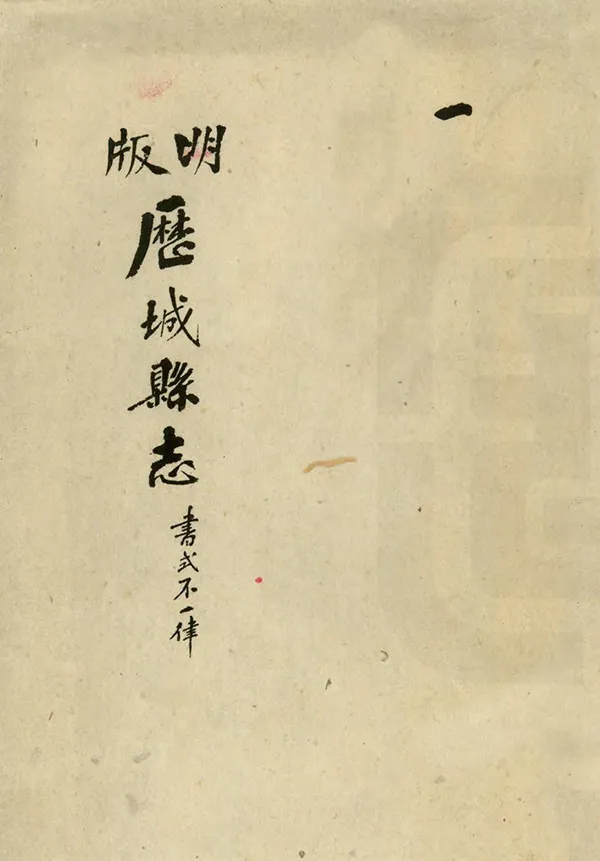 一
明版
歷城縣志
書式不一律